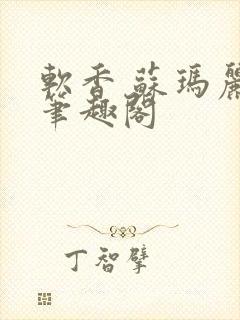 軟香蘇瑪麗
筆趣閣
丁智擘